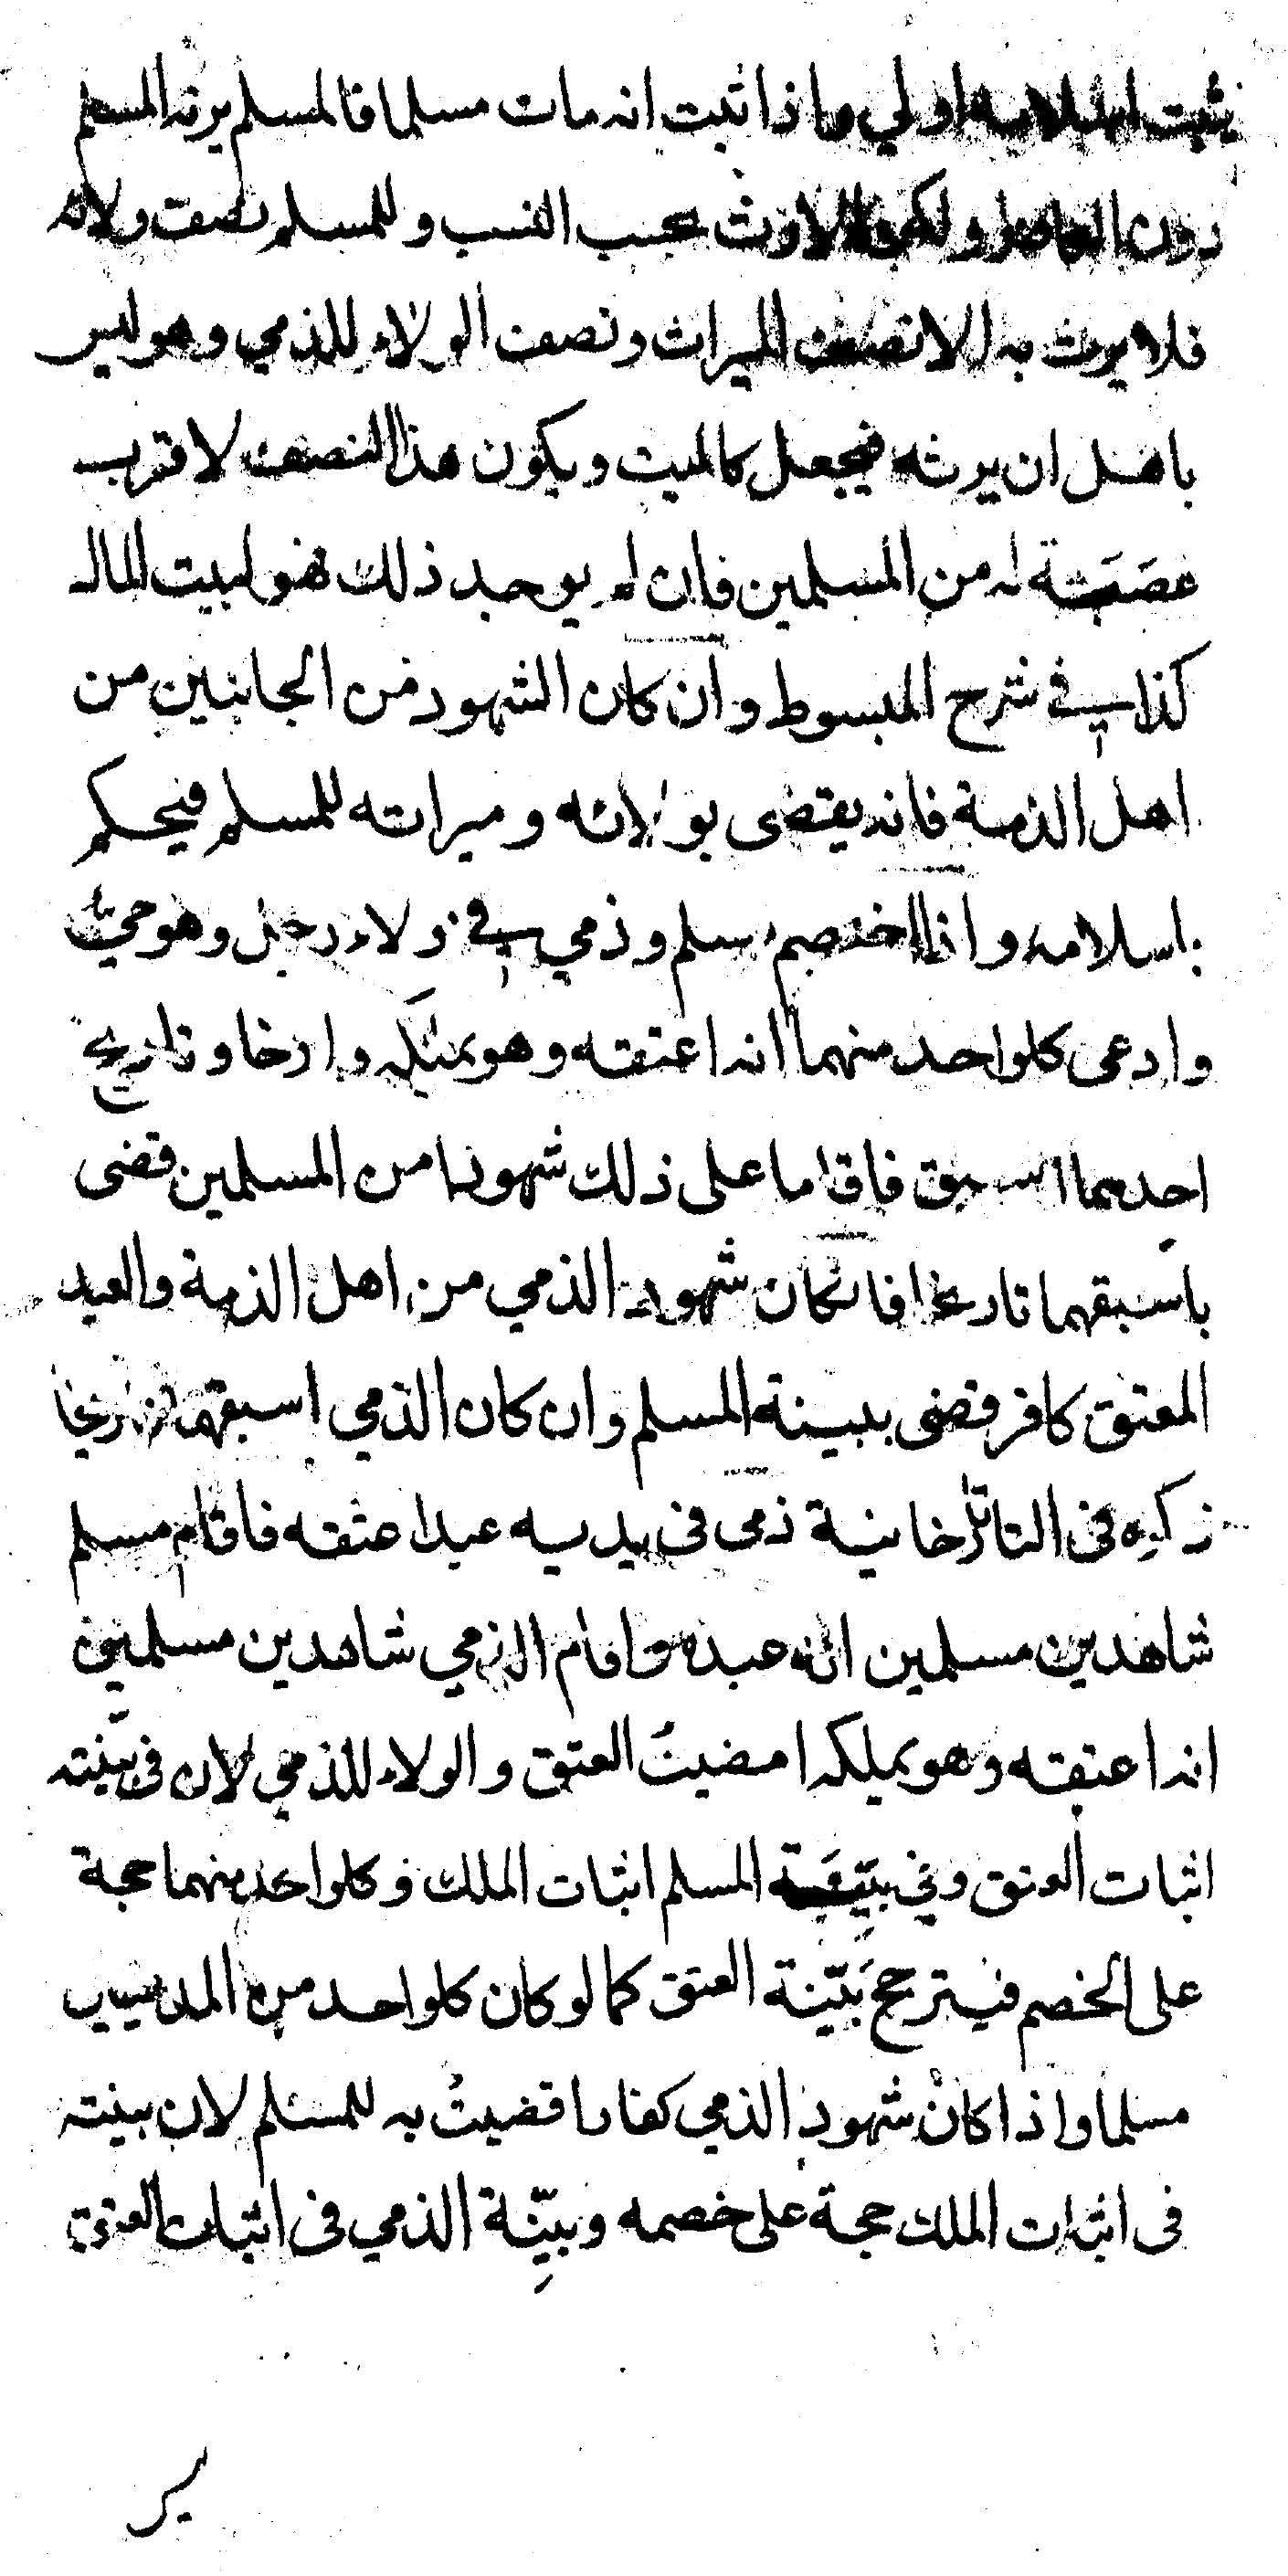 يثبت اسلامه اولي واذا ثبت انه مات مسلما فالمسلم يرثه المسلم
دون الكافر ولكن الارث بحسب النسب وللمسلم نصف ولائه
فلا يرث به الا نصف الميراث ونصف الولاء للذمي وهو ليس
باهل ان يرثه فيجعل كالميت ويكون هذا النصف لاقرب
عصَبَة له من المسلمين فان لم يوجد ذلك فهو لبيت المال
كذا في شرح المبسوط وان كان الشهود من الجانبين من
اهل الذمة فانه يقضى بولائه وميراثه للمسلم فيحكم
باسلامه واذا اختصم مسلم وذمي في ولاء رجل وهو حي
وادعى كلواحد منهما انه اعتقه وهو يملكه وارخا وتاريخ
احدهما اسبق فاقاما على ذلك شهودا من المسلمين قضى
باسبقهما تاريخا فان كان شهود الذمي من اهل الذمة والعبد
المعتق كافر قضى ببينة المسلم وان كان الذمي اسبقهما تاريخا
ذكره في التاتارخانية ذمى فى يديه عبد اعتقه فاقام مسلم
شاهدين مسلمين انه عبده واقام الذمي شاهدين مسلمين
انه اعتقه وهو يملكه امضيتُ العتق والولاء للذمي لان في بيّنته
اثبات العتق وفي بيّنَة المسلم اثبات الملك وكلواحد منهما حجة
على الخصم فيترجح بَيّنة العتق كما لو كان كلواحد من المدعيين
مسلما واذا كان شهود الذمي كفارا قضيتُ به للمسلم لان بينته
في اثبات الملك حجة على خصمه وبيّنة الذمي في اثبات العتق